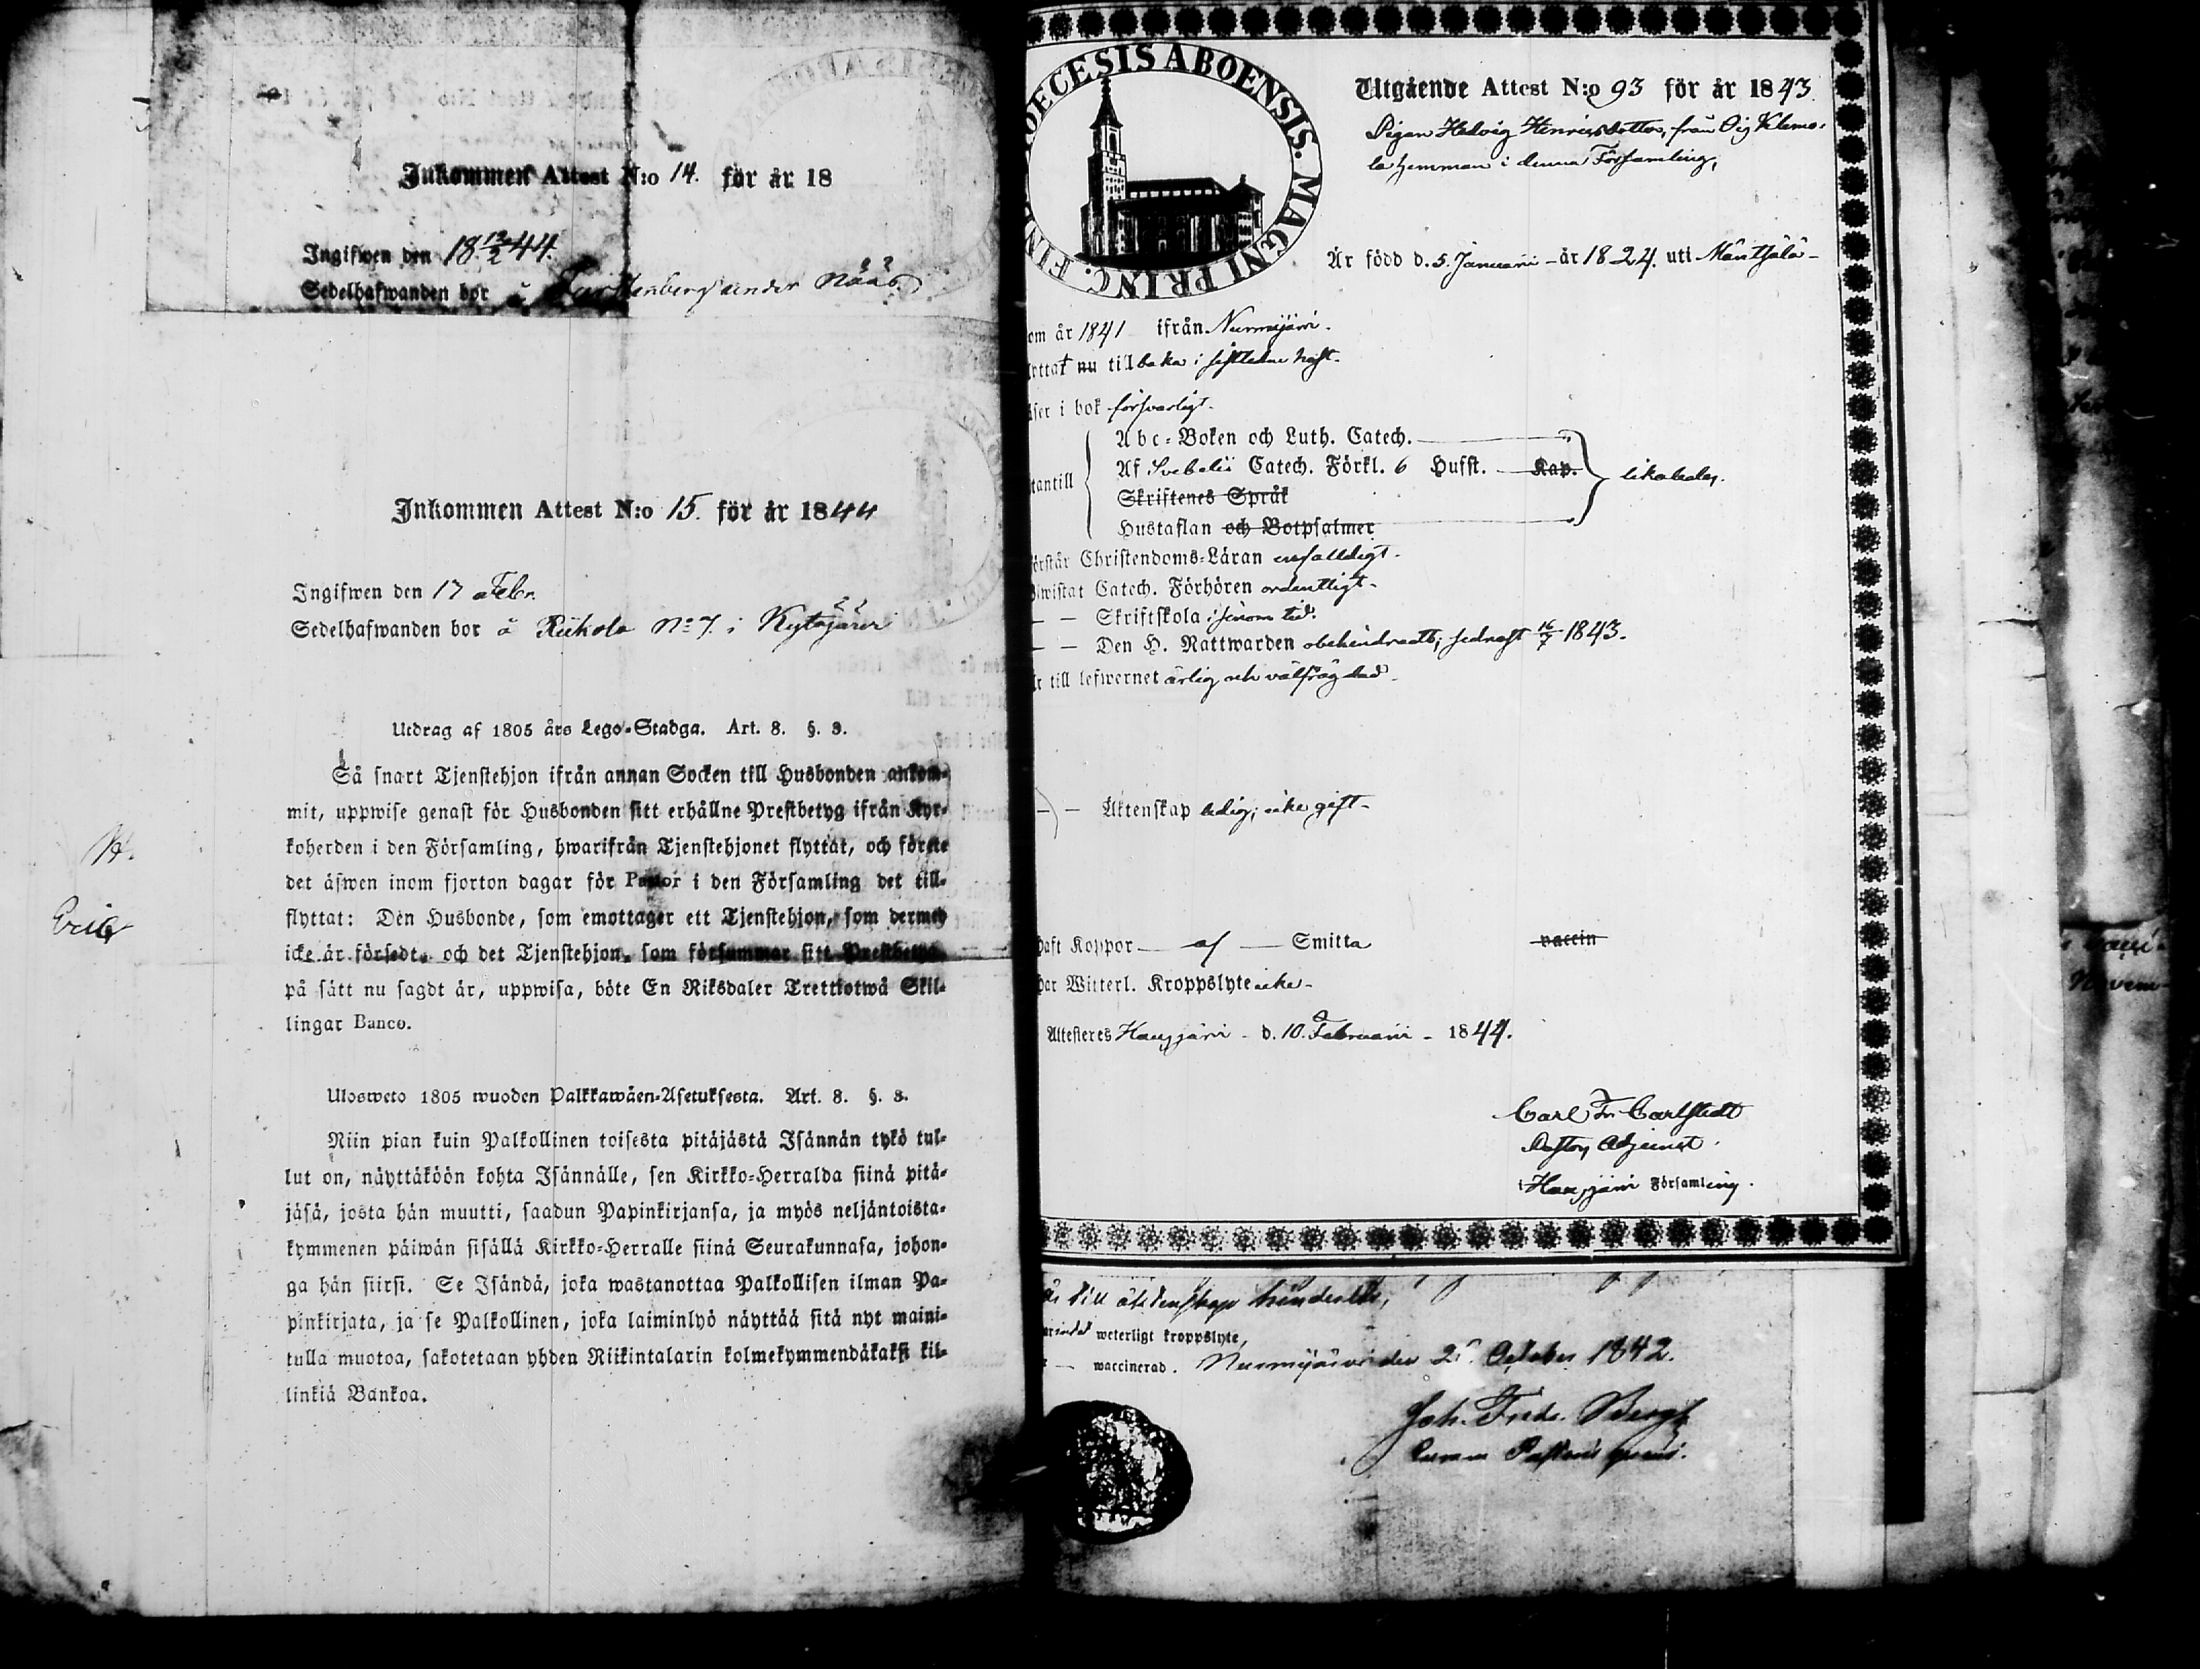 Inkommen Attest N:o 14. för år 18
Ingifwen den 18 12/2 44.
Sedelhafwanden bor å under Nääs
Inkommen Attest N:o 15. för år 1844
Ingifwen den 17 Febr.
Sedelhafwanden bor å Rickola No 7. i Kytäjärvi
Utdrag af 1805 års Lego-Stadga. Art. 8. §. 3.
Så snart Tjenstehjon ifrån annan Socken till Husbonden ankom-
mit, uppwise genast för Husbonden sitt erhållne Prestbetyg ifrån Kyr-
koherden i den Församling, hwarifrån Tjenstehjonet flyttat, och förete
det äfwen inom fjorton dagar för Pastor i den Församling det till-
flyttat: Den Husbonde, som emottager ett Tjenstehjon, som dermed
icke är försedt, och det Tjenstehjon, som försummar sitt Prestbetyg,
på sätt nu sagdt är, uppwisa, böte En Riksdaler Trettiotwå Skil-
lingar Banco.
Ulosweto 1805 wuoden Palkkawäen-Asetuksesta. Art. 8. §. 3.
Niin pian kuin Palkollinen toisesta pitäjästä Isännän tykö tul-
lut on, näyttäköön kohta Isännälle, sen Kirkko-Herralda siinä pitä-
jäsä, josta hän muutti, saadun Papinkirjansa, ja myös neljäntoista-
kymmenen päiwän sisällä Kirkko-Herralle siinä Seurakunnasa, johon-
ga hän siirsi. Se Isändä, joka wastanottaa Palkollisen ilman Pa-
pinkirjata, ja se Palkollinen, joka laiminlyö näyttää sitä nyt maini-
tulla muotoa, sakotetaan yhden Riikintalarin kolmekymmendäkaksi kil-
linkiä Bankoa.
H.
Eric
OECESIS ABOENSIS. MAGNI PRINC. FIN
Utgående Attest N:o 93 för år 1843.
Pigan Hedvig Henricsdotter, från Oig Klemo-
la hemman i denna Församling,
Är född d. 5. Januarii - år 1824. uti Mäntsälä -
om år 1841 ifrån Nurmijärvi.
yttat nu tillbaka i sistledne höst.
äser i bok försvarligt.
tantill
Abc-Boken och Luth. Catech.
Af Svebelii Catech. Förkl. 6 Hufst. Kap.
Skriftenes Språk
Hustaflan och Botpsalmer
likaledes.
örstår Christendoms-Läran enfalldigt.
iwistat Catech. Förhören ordentligt -
— — Skriftskola i sinom tid.
— — Den H. Nattwarden obehindradt; sednast 16/7 1843.
r till lefwernet ärlig och välfrägdad.
— — Äktenskap ledig; icke gift -
haft Koppor — af — Smitta vaccin
har Witterl. Kroppslyte icke -
Attesteres Hausjärvi - d. 10. Februarii - 1844.
Carl Fr. Carlstedt
Pastors Adjunct
i Hausjärvi Församling.
till äktenskap hinderlös,
weterligt kroppslyte,
— waccinerad. Nurmijärvi den 2 October 1842.
Joh. Fredr. Bergh